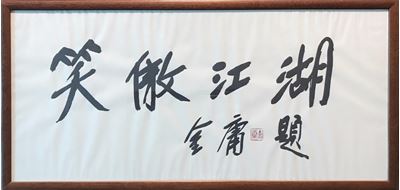 笑傲江湖
金庸題